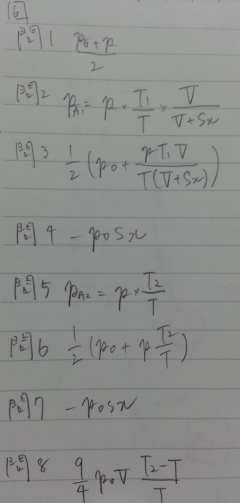 [6]
問1 \frac{p_0+p}{2}
問2 p_{A1} = p × \frac{T_1}{T} × \frac{V}{V+Sx}
問3 \frac{1}{2}(p_0 + \frac{pT_1V}{T(V+Sx)})
問4 -p_0Sx
問5 p_{A2} = p × \frac{T_2}{T}
問6 \frac{1}{2}(p_0 + p\frac{T_2}{T})
問7 -p_0Sx
問8 \frac{9}{4}p_0V\frac{T_2-T}{T}